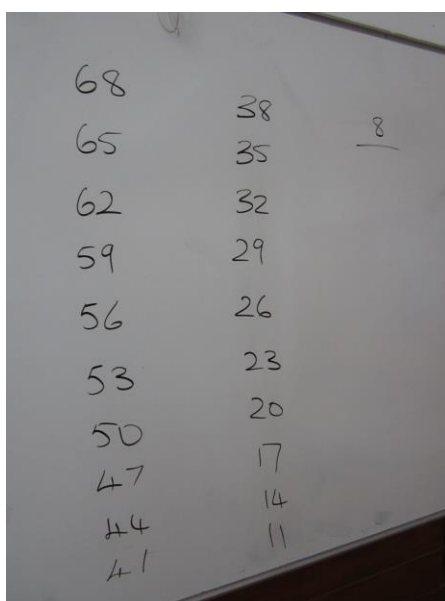 68
65
62
59
56
53
50
47
44
41
38
35
32
29
26
23
20
17
14
11
8